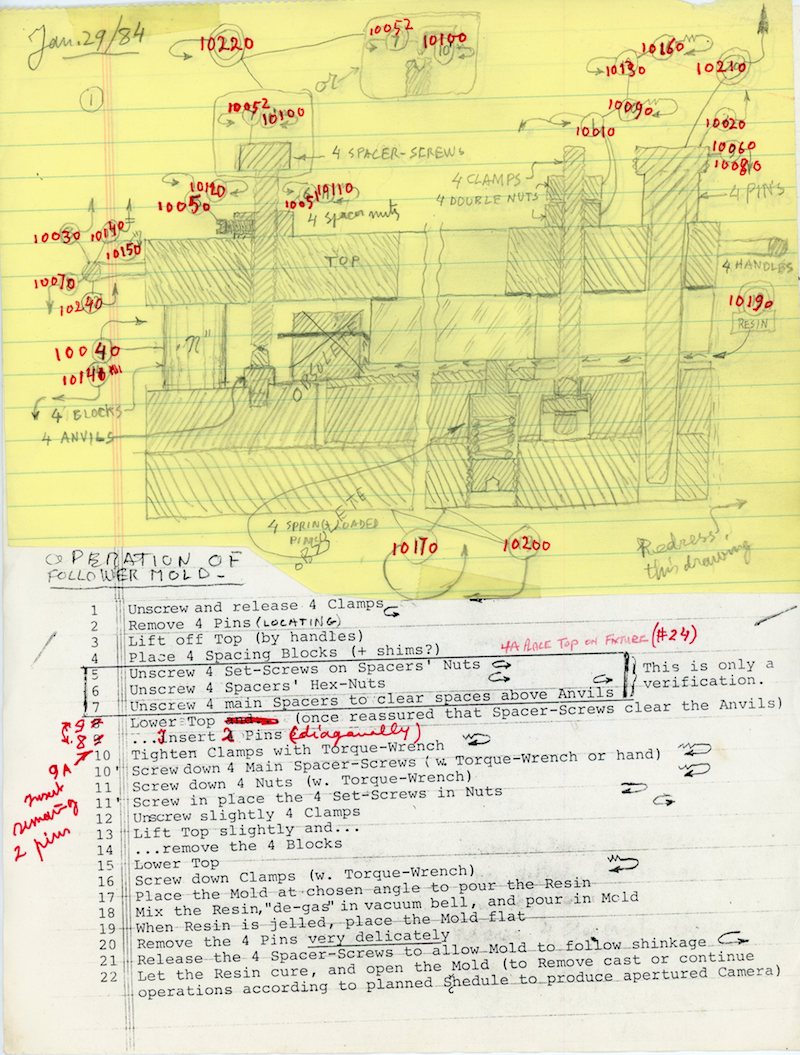 Jan. 29/84
1
10220
or
10052
7
10100
10
10160
10130
10210
10052
10100
10090
10010
10020
10060
10080
4 SPACER-SCREWS
4 CLAMPS
4 DOUBLE NUTS
4 PINS
10120
10050
10110
4 Spacer nuts
10030
10140
10150
TOP
4 HANDLES
10070
10240
10190
RESIN
10040
10140
"N"
OBSOLETE
4 BLOCKS
4 ANVILS
4 SPRING LOADED
PINS
OBSOLETE
10170
10200
Redress
this drawing
OPERATION OF
FOLLOWER MOLD-
1 Unscrew and release 4 Clamps
2 Remove 4 Pins (LOCATING)
3 Lift off Top (by handles)
4 Place 4 Spacing Blocks (+ shims?)
4A PLACE TOP ON FIXTURE (#24)
5 Unscrew 4 Set-Screws on Spacers' Nuts
6 Unscrew 4 Spacers' Hex-Nuts
7 Unscrew 4 main Spacers to clear spaces above Anvils
This is only a
verification.
9 8 Lower Top and... (once reassured that Spacer-Screws clear the Anvils)
8 9 ...Insert 2 Pins (diagonally)
9A
Insert
remaining
2 pins
10 Tighten Clamps with Torque-Wrench
10' Screw down 4 Main Spacer-Screws (w. Torque-Wrench or hand)
11 Screw down 4 Nuts (w. Torque-Wrench)
11' Screw in place the 4 Set-Screws in Nuts
12 Unscrew slightly 4 Clamps
13 Lift Top slightly and...
14 ...remove the 4 Blocks
15 Lower Top
16 Screw down Clamps (w. Torque-Wrench)
17 Place the Mold at chosen angle to pour the Resin
18 Mix the Resin,"de-gas" in vacuum bell, and pour in Mold
19 When Resin is jelled, place the Mold flat
20 Remove the 4 Pins very delicately
21 Release the 4 Spacer-Screws to allow Mold to follow shinkage
22 Let the Resin cure, and open the Mold (to Remove cast or continue
operations according to planned Shedule to produce apertured Camera)